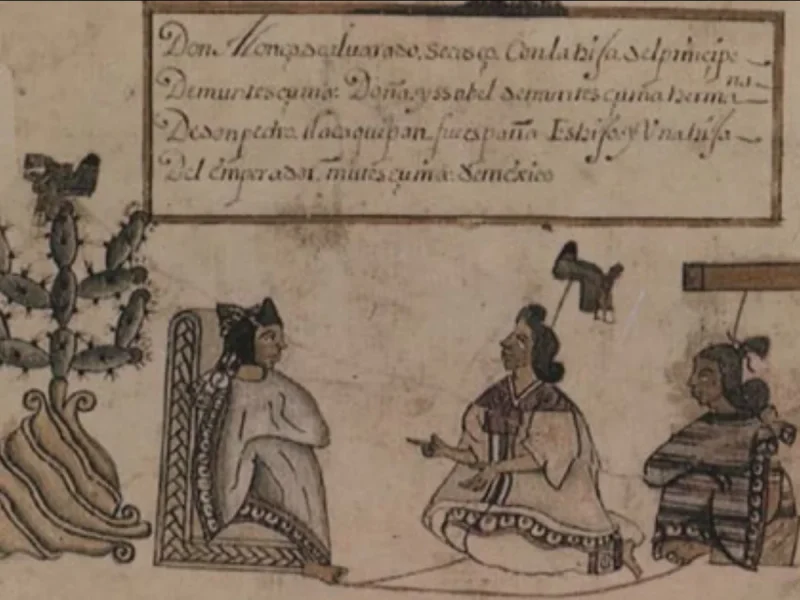 Don Alonço de aluarado, se caso. Con la hija del principe
De muntesçuma. Doña yssabel de muntesçuma herma na
De don pedro tlacaguepan fue españa. Es hijo y Una hija
Del emperador. mutesçuma. de mexico